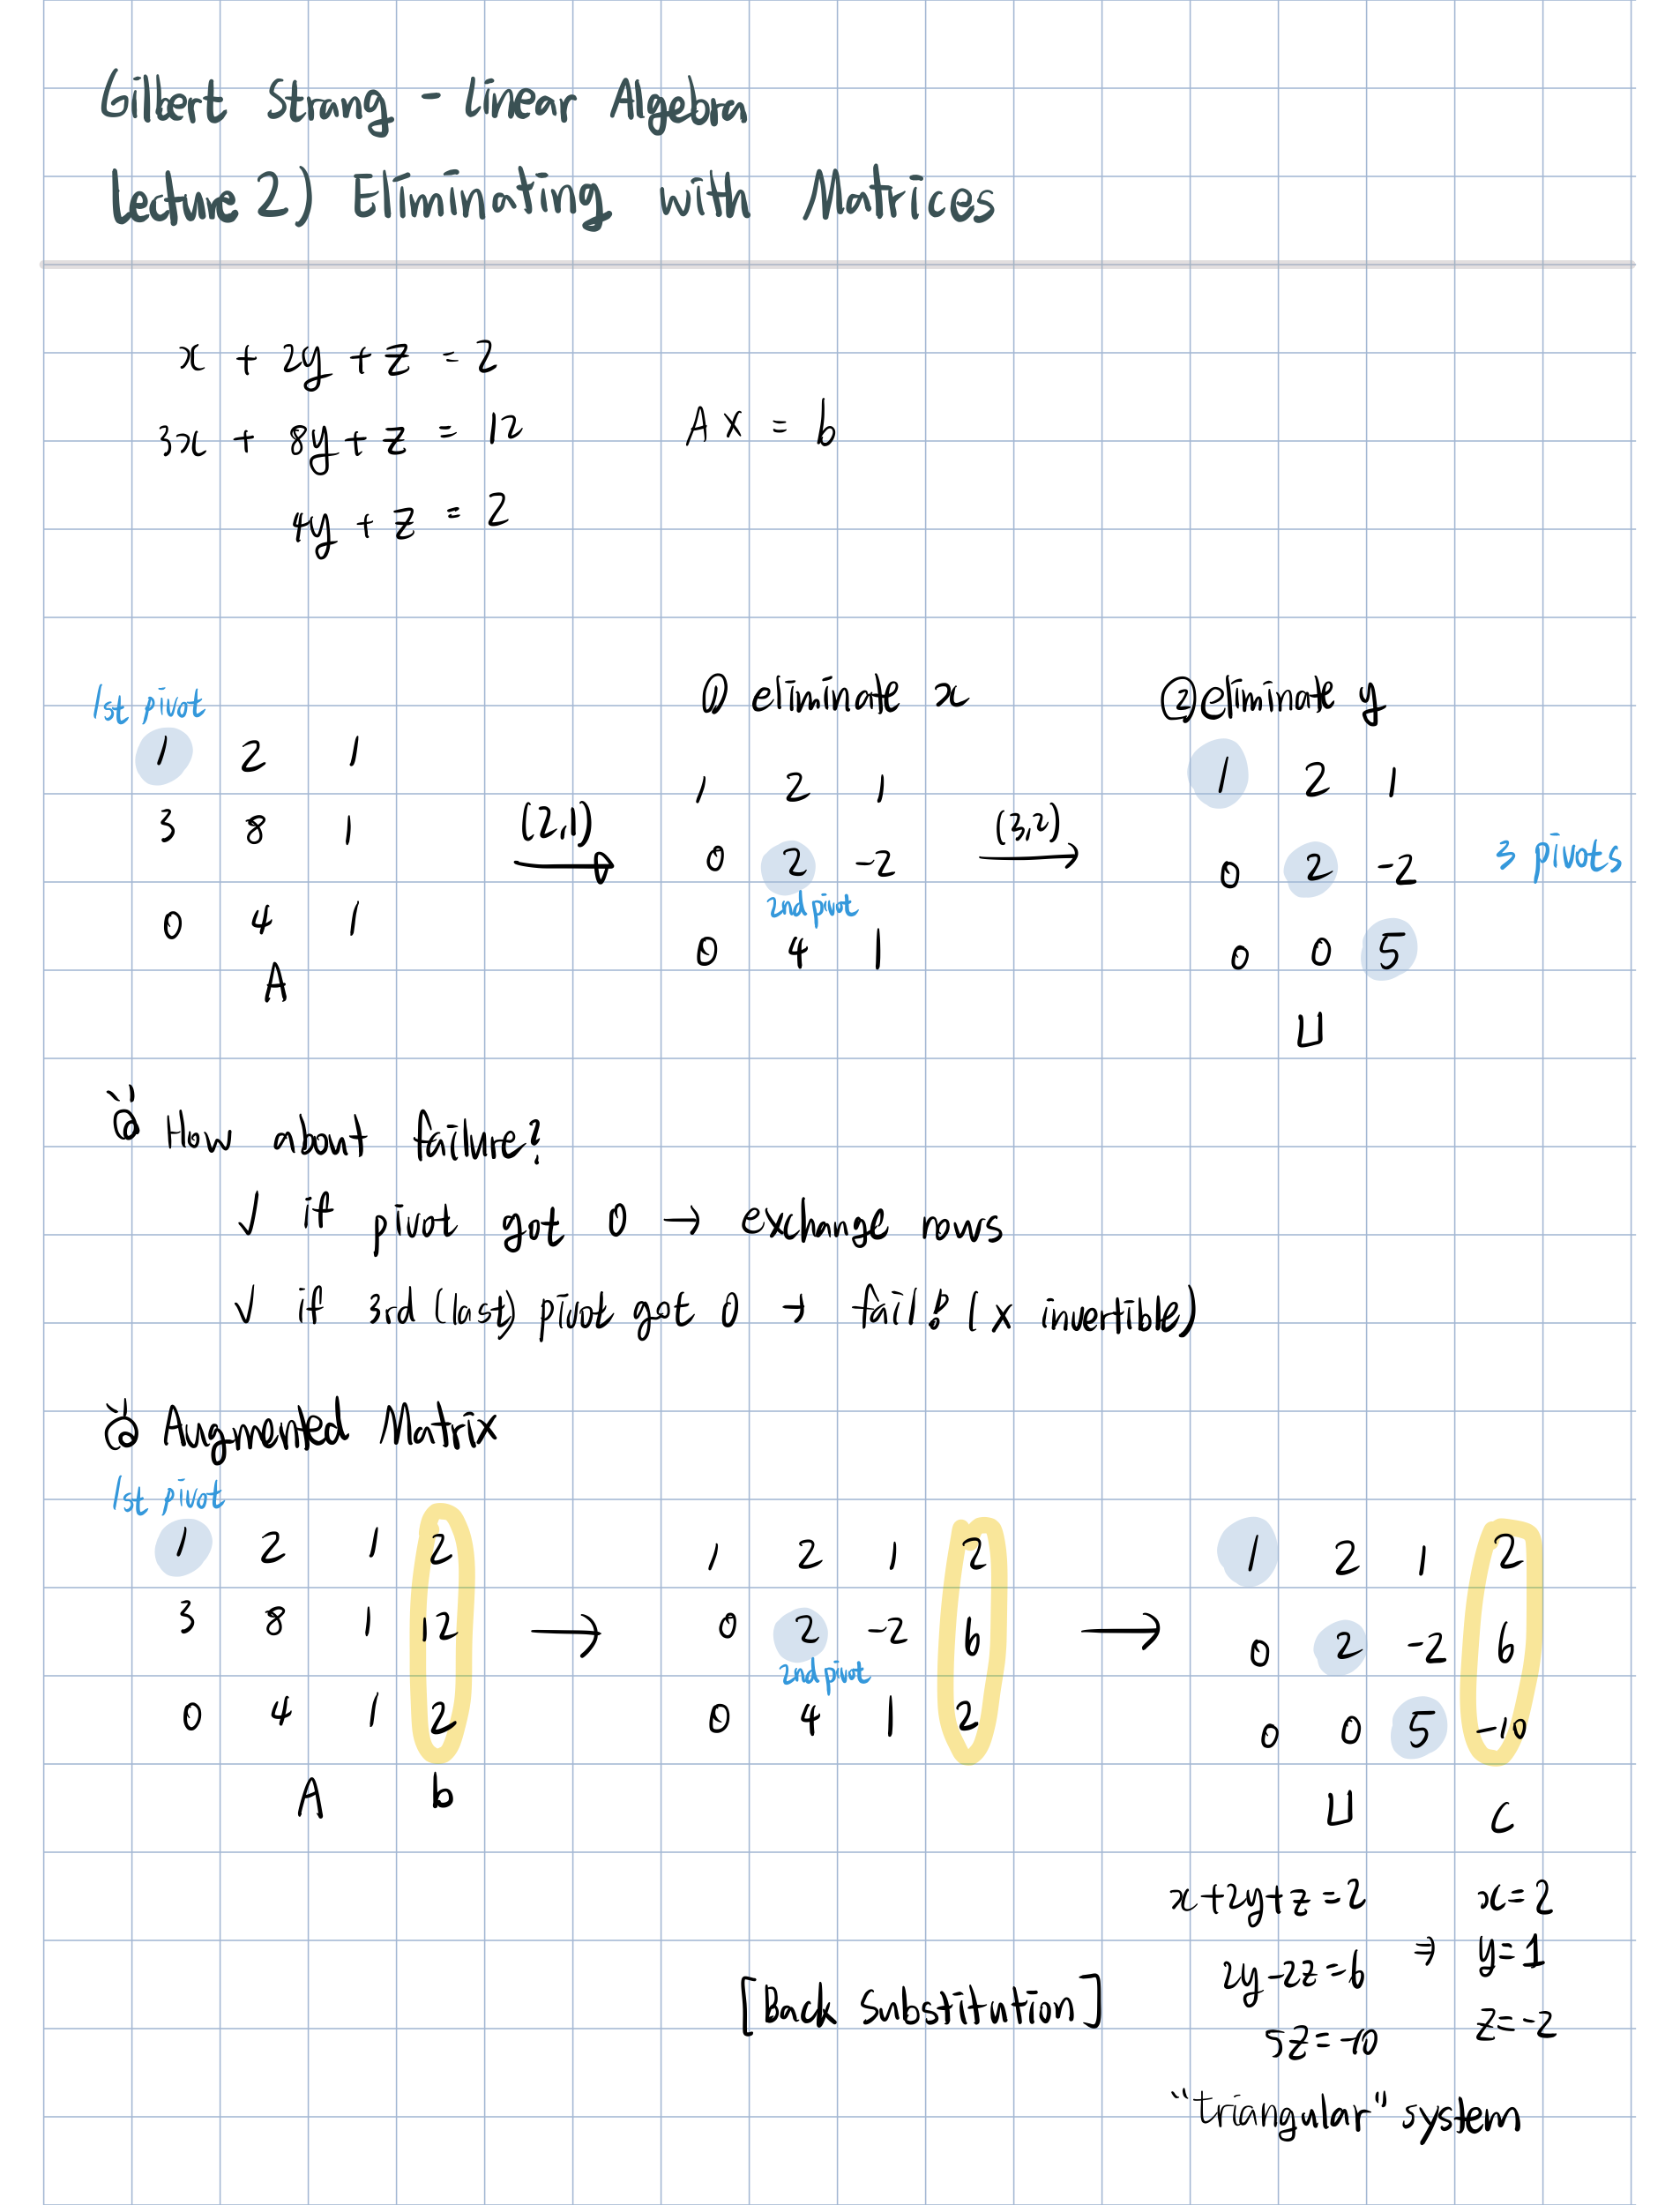 Gilbert Strang - Linear Algebra
Lecture 2) Eliminating with Matrices
x + 2y + z = 2
3x + 8y + z = 12
AX = b
4y + z = 2
① eliminate x
② eliminate y
1st pivot
1 2 1
3 8 1
0 4 1
A
(2,1)
→
1 2 1
0 2 -2
2nd pivot
0 4 1
(3,2)
→
1 2 1
0 2 -2
0 0 5
U
3 pivots
How about failure?
✓ if pivot got 0 → exchange rows
✓ if 3rd (last) pivot got 0 → fail! (x invertible)
Augmented Matrix
1st pivot
1 2 1 2
3 8 1 12
0 4 1 2
A b
→
1 2 1 2
0 2 -2 6
2nd pivot
0 4 1 2
→
1 2 1 2
0 2 -2 6
0 0 5 -10
U C
x+2y+z=2
2y-2z=6
5z=-10
⇒
x=2
y=1
z=-2
[Back Substitution]
"triangular" system